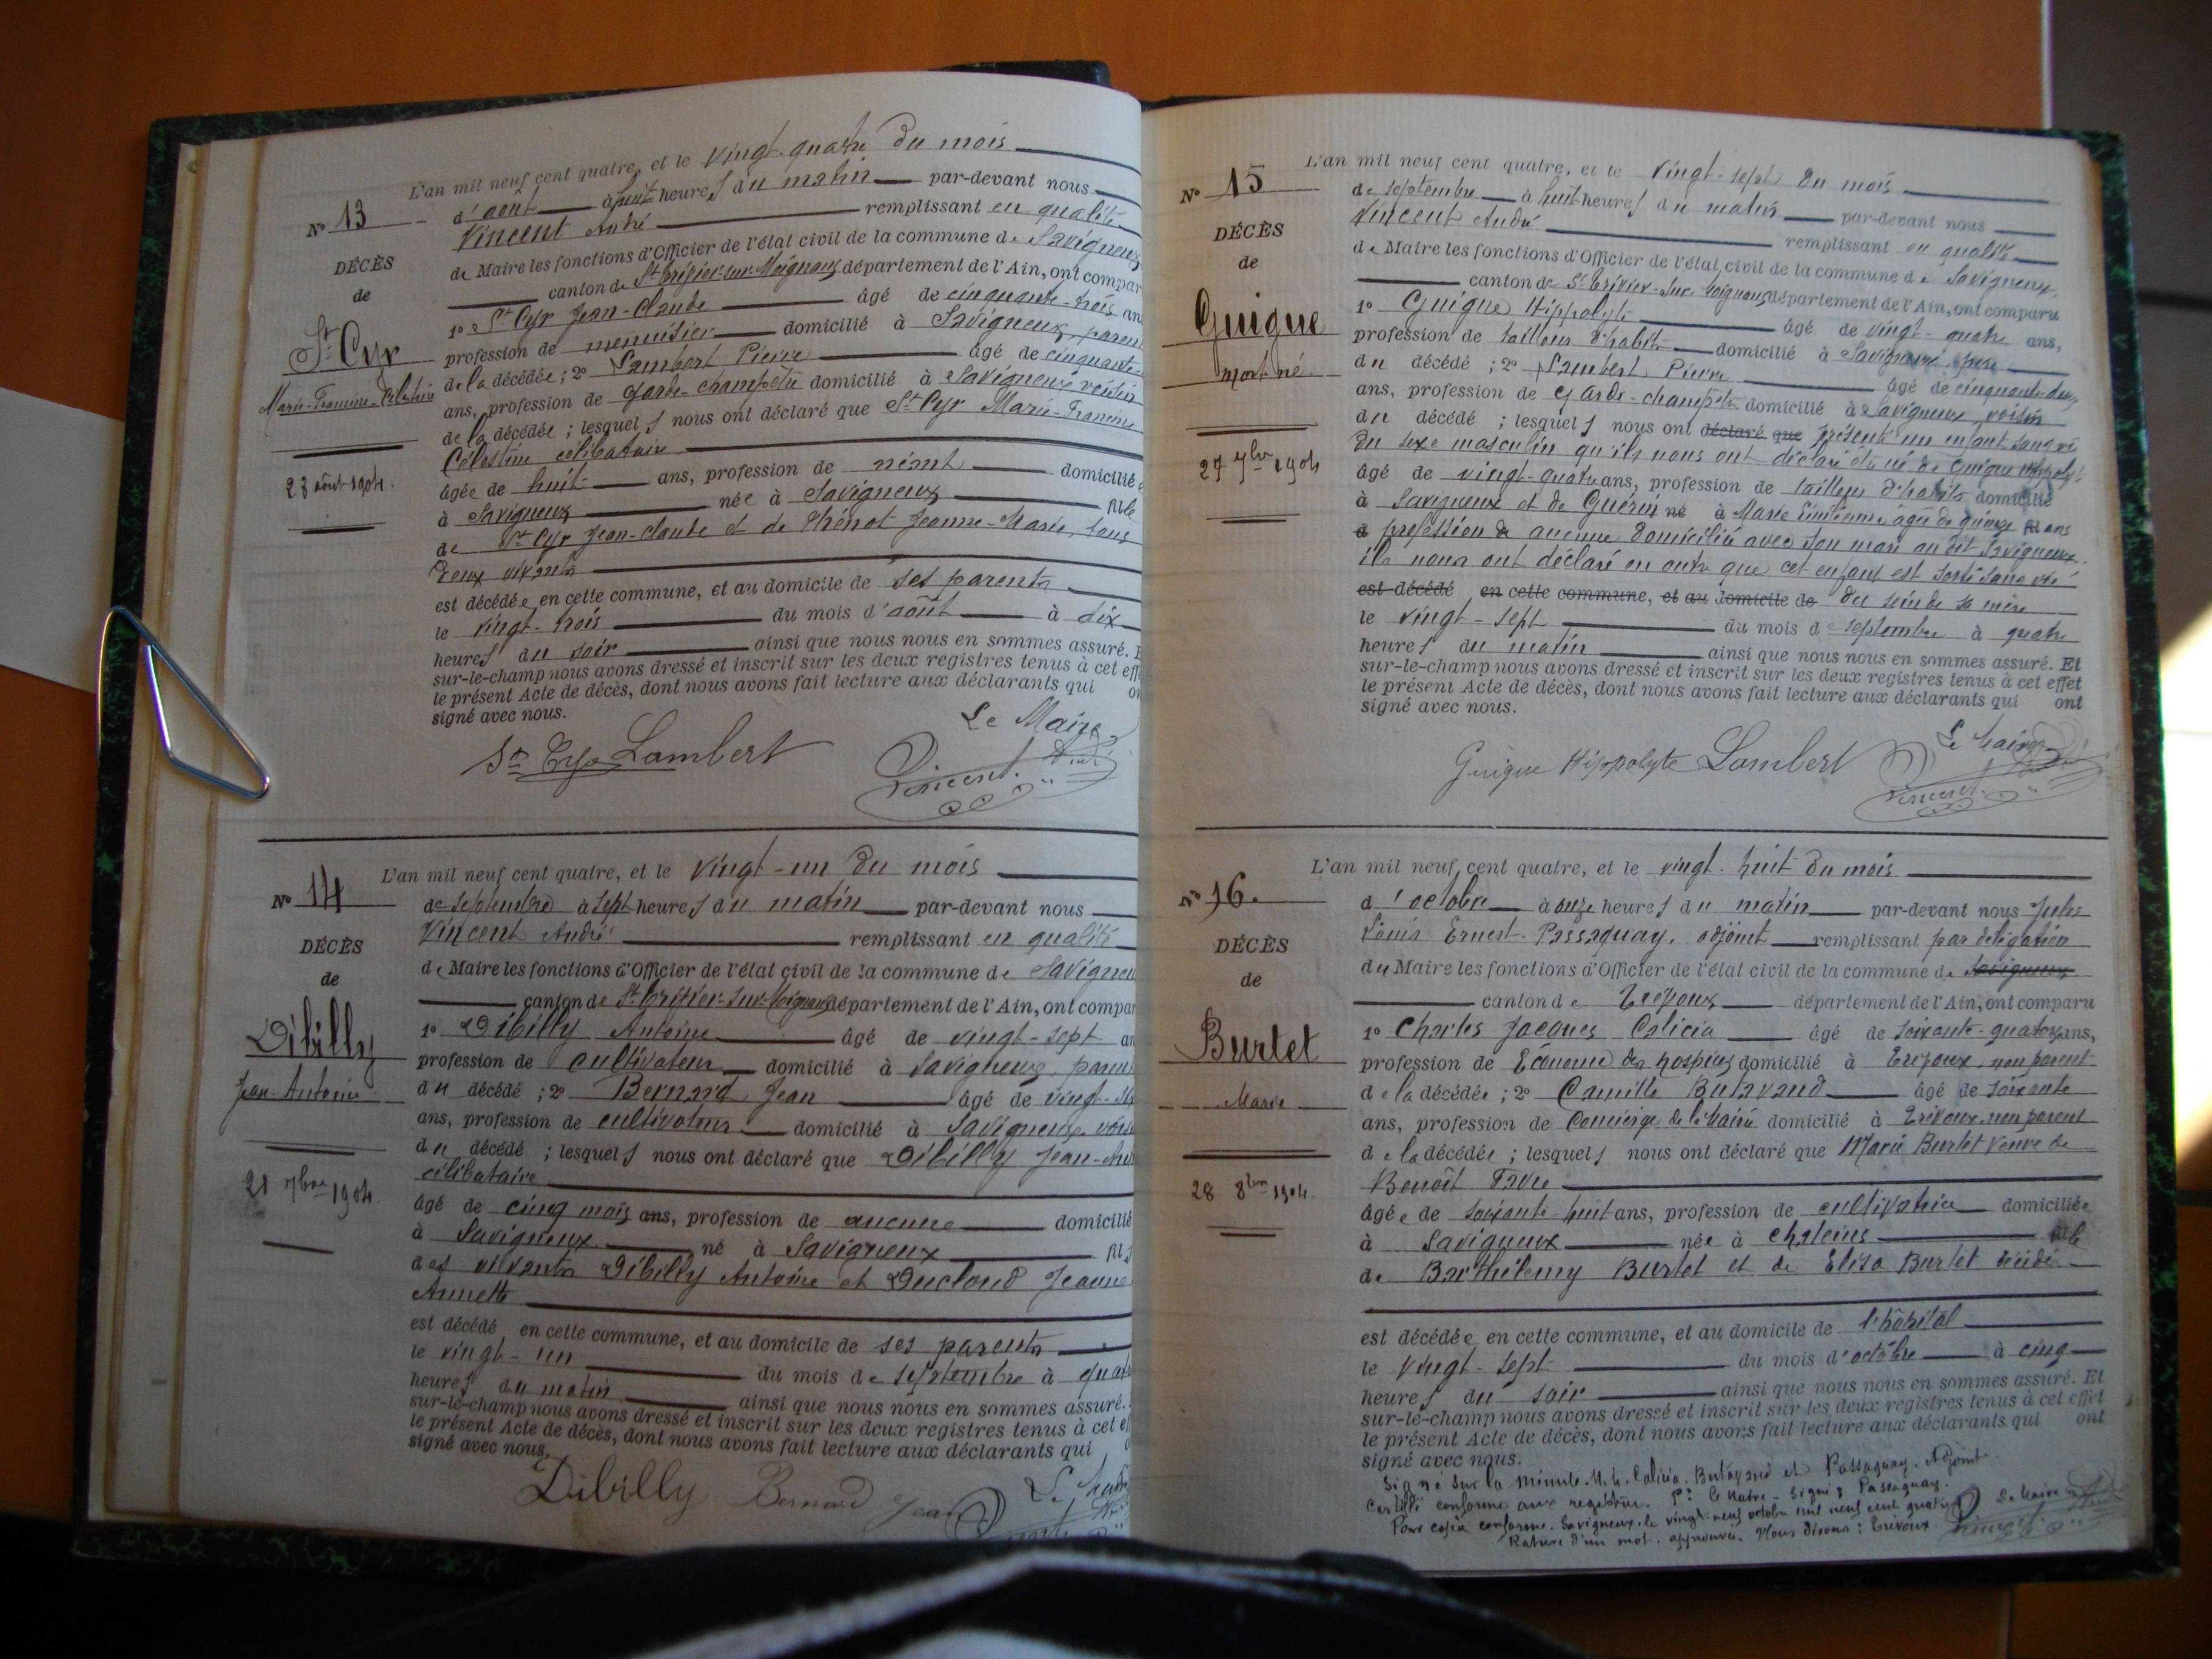 N° 13
DÉCÈS
de
St Cyr
Marie-Francine-Célestine
23 août 1904.
L'an mil neuf cent quatre, et le vingt-quatre du mois
d'août à huit heures du matin par-devant nous
Vincent André remplissant en qualité
de Maire les fonctions d'Officier de l'état civil de la commune de Savigneux
canton de St Trivier-sur-Moignans département de l'Ain, ont compar
1° St Cyr Jean-Claude âgé de cinquante-trois an
profession de menuisier domicilié à Savigneux, parent
de la décédée ; 2° Lambert Pierre âgé de cinquante-
ans, profession de garde-champêtre domicilié à Savigneux voisin
de la décédée ; lesquels nous ont déclaré que St Cyr Marie-Francine
Célestine célibataire
âgée de huit ans, profession de néant domicilié
à Savigneux née à Savigneux fille
de St Cyr Jean-Claude et de Thénot Jeanne-Marie, tous
deux vivants
est décédée en cette commune, et au domicile de ses parents
le vingt-trois du mois d'août à dix
heures du soir ainsi que nous nous en sommes assuré.
sur-le-champ nous avons dressé et inscrit sur les deux registres tenus à cet eff
le présent Acte de décès, dont nous avons fait lecture aux déclarants qui on
signé avec nous.
Le Maire
St Cyr Lambert Vincent André
N° 14
DÉCÈS
de
Dibilly
Jean-Antoine
21 7bre 1904.
L'an mil neuf cent quatre, et le vingt-un du mois
de septembre à sept heures du matin par-devant nous
Vincent André remplissant en qualité
de Maire les fonctions d'Officier de l'état civil de la commune de Savigneu
canton de St Trivier-sur-Moignans département de l'Ain, ont compar
1° Dibilly Antoine âgé de vingt-sept an
profession de cultivateur domicilié à Savigneux, parent
du décédé ; 2° Bernard Jean âgé de vingt-six
ans, profession de cultivateur domicilié à Savigneux voisi
du décédé ; lesquels nous ont déclaré que Dibilly Jean-Ant
célibataire
âgé de cinq mois ans, profession de aucune domicilié
à Savigneux né à Savigneux fils
des vivants Dibilly Antoine et Ducloud Jeanne
Annette
est décédé en cette commune, et au domicile de ses parents
le vingt-un du mois de septembre à quat
heures du matin ainsi que nous nous en sommes assuré.
sur-le-champ nous avons dressé et inscrit sur les deux registres tenus à cet ef
le présent Acte de décès, dont nous avons fait lecture aux déclarants qui o
signé avec nous.
Dibilly Bernard Jean Le Mair
N° 15
DÉCÈS
de
Guigue
mort né
27 7bre 1904
L'an mil neuf cent quatre, et le vingt-sept du mois
de septembre à huit heures du matin par-devant nous
Vincent André remplissant en qualité
de Maire les fonctions d'Officier de l'état civil de la commune de Savigneux
canton de St Trivier-sur-Moignans département de l'Ain, ont comparu
1° Guigue Hippolyte âgé de vingt-quatre ans,
profession de tailleur d'habits domicilié à Savigneux, père
du décédé ; 2° Lambert Pierre âgé de cinquante-deux
ans, profession de garde-champêtre domicilié à Savigneux, voisin
du décédé ; lesquels nous ont déclaré que présenté un enfant sans vie
du sexe masculin qu'ils nous ont déclaré être né de Guigue Hippolyte
âgé de vingt-quatre ans, profession de tailleur d'habits domicilié
à Savigneux et de Guérin né à Marie Emilienne âgée de quinze fil ans
d profession de aucune domiciliée avec son mari au dit Savigneux
ils nous ont déclaré en outre que cet enfant est sorti sans vie
est décédé en cette commune, et au domicile de du sein de sa mère
le vingt-sept du mois de septembre à quatre
heures du matin ainsi que nous nous en sommes assuré. Et
sur-le-champ nous avons dressé et inscrit sur les deux registres tenus à cet effet
le présent Acte de décès, dont nous avons fait lecture aux déclarants qui ont
signé avec nous.
Le Maire
Guigue Hippolyte Lambert Vincent
N° 16.
DÉCÈS
de
Burtet
Marie
28 8bre 1904.
L'an mil neuf cent quatre, et le vingt-huit du mois
d'octobre à onze heures du matin par-devant nous Jules
Louis Ernest Passaquay, adjoint remplissant par délégation
du Maire les fonctions d'Officier de l'état civil de la commune de Savigneux
canton de Trévoux département de l'Ain, ont comparu
1° Charles Jacques Calicia âgé de soixante-quatorze ans,
profession de Économe des hospices domicilié à Trévoux, non parent
de la décédée ; 2° Camille Butavand âgé de soixante
ans, profession de Concierge de la Mairie domicilié à Trévoux non parent
de la décédée ; lesquels nous ont déclaré que Marie Burtet veuve de
Benoît Favre
âgée de soixante-huit ans, profession de cultivatrice domiciliée
à Savigneux née à Chaleins fille
de Barthélemy Burtet et de Elisa Burtet décédés
est décédée en cette commune, et au domicile de l'hôpital
le vingt-sept du mois d'octobre à cinq
heures du soir ainsi que nous nous en sommes assuré. Et
sur-le-champ nous avons dressé et inscrit sur les deux registres tenus à cet effet
le présent Acte de décès, dont nous avons fait lecture aux déclarants qui ont
signé avec nous.
Signé sur la minute. M. M. Calicia. Butavand et Passaquay. Adjoint.
Certifié conforme aux registres. Pr le Maire - Signé : Passaquay.
Pour copie conforme. Savigneux, le vingt-neuf octobre mil neuf cent quatre Le Maire
Rature d'un mot, approuvée. Nous disons : Trévoux. Vincent